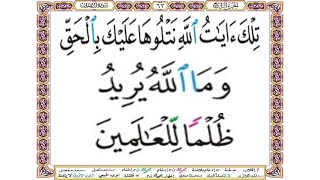 تِلْكَ ءَايَٰتُ ٱللَّهِ نَتْلُوهَا عَلَيْكَ بِٱلْحَقِّ
وَمَا ٱللَّهُ يُرِيدُ
ظُلْمًا لِّلْعَٰلَمِينَ